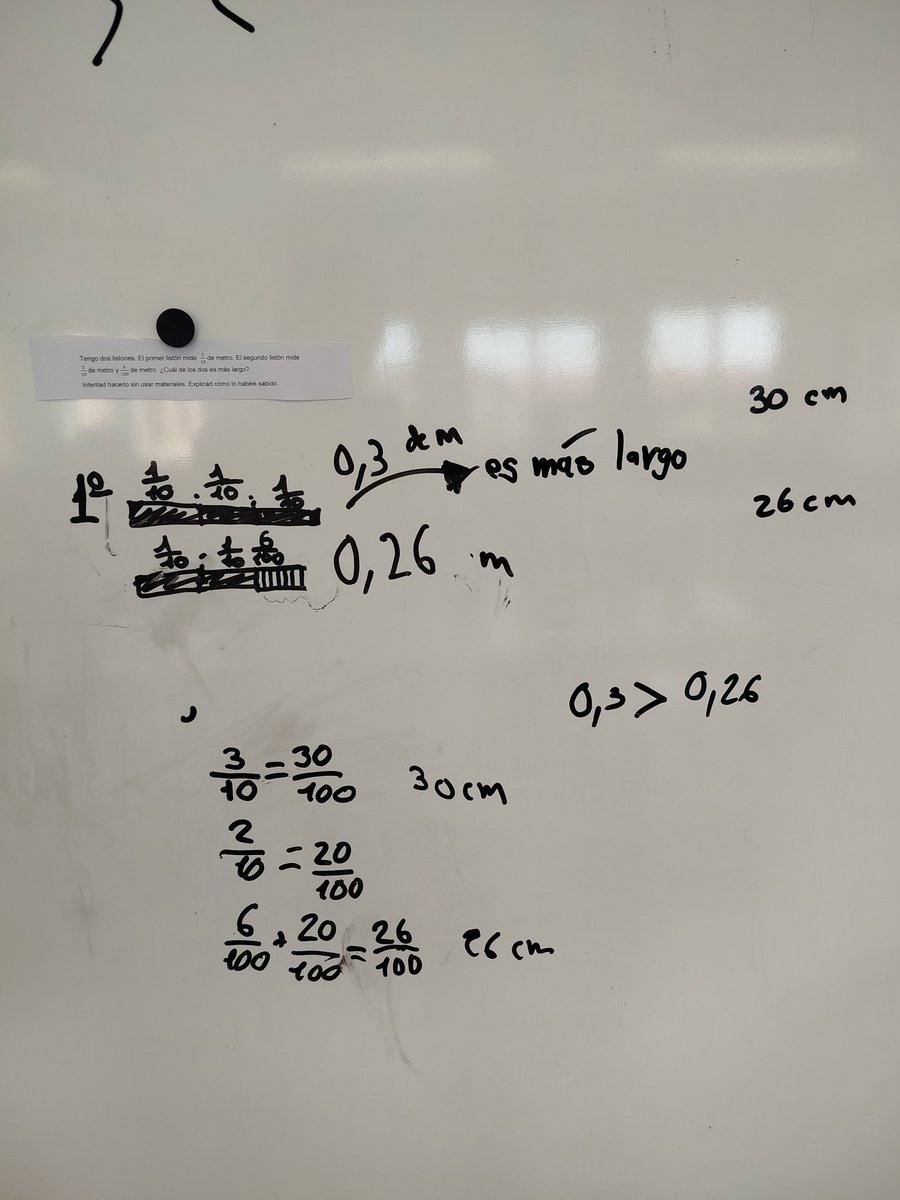 Tengo dos listones. El primer listón mide 3/10 de metro. El segundo listón mide
2/10 de metro y 6/100 de metro. ¿Cuál de los dos es más largo?
Intentad hacerlo sin usar materiales. Explicad cómo lo habéis sabido.
30 cm
1º 1/10 . 1/10 . 1/10 0,3 de m es más largo
26 cm
1/10 . 1/10 6/100 0,26 m
0,3 > 0,26
3/10 = 30/100 30 cm
2/10 = 20/100
6/100 + 20/100 = 26/100 26 cm